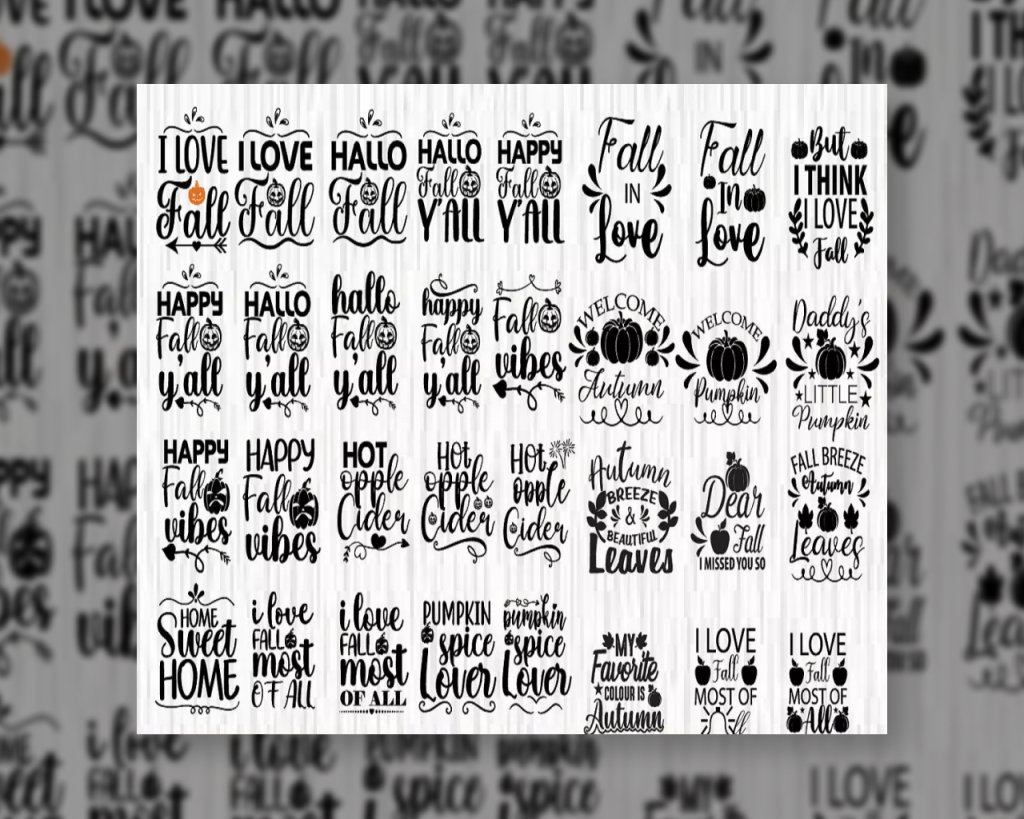 I LOVE
Fall
I LOVE
Fall
HALLO
Fall
HALLO
Fall
Y'ALL
HAPPY
Fall
Y'ALL
Fall
IN
Love
Fall
In
Love
But
I THINK
I LOVE
Fall
HAPPY
Fall
y'all
HALLO
Fall
y'all
hallo
Fall
y'all
happy
Fall
y'all
Fall
vibes
WELCOME
Autumn
WELCOME
Pumpkin
Daddy's
LITTLE
Pumpkin
HAPPY
Fall
vibes
HAPPY
Fall
vibes
HOT
opple
Cider
Hot
opple
Cider
Hot
opple
Cider
Autumn
BREEZE
&
BEAUTIFUL
Leaves
Dear
Fall
I MISSED YOU SO
FALL BREEZE
Autumn
Leaves
HOME
Sweet
HOME
i love
FALL
most
OF ALL
i love
FALL
most
OF ALL
PUMPKIN
spice
Lover
pumpkin
spice
Lover
MY
Favorite
COLOUR IS
Autumn
I LOVE
Fall
MOST OF
I LOVE
Fall
MOST OF
All